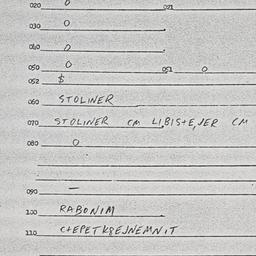 020 0 021
030 0
040 0
050 0 051 0
052 $
060 STOLINER
070 STOLINER CM LIBISTE,JER CM
080 0
090 —
100 RABONIM
110